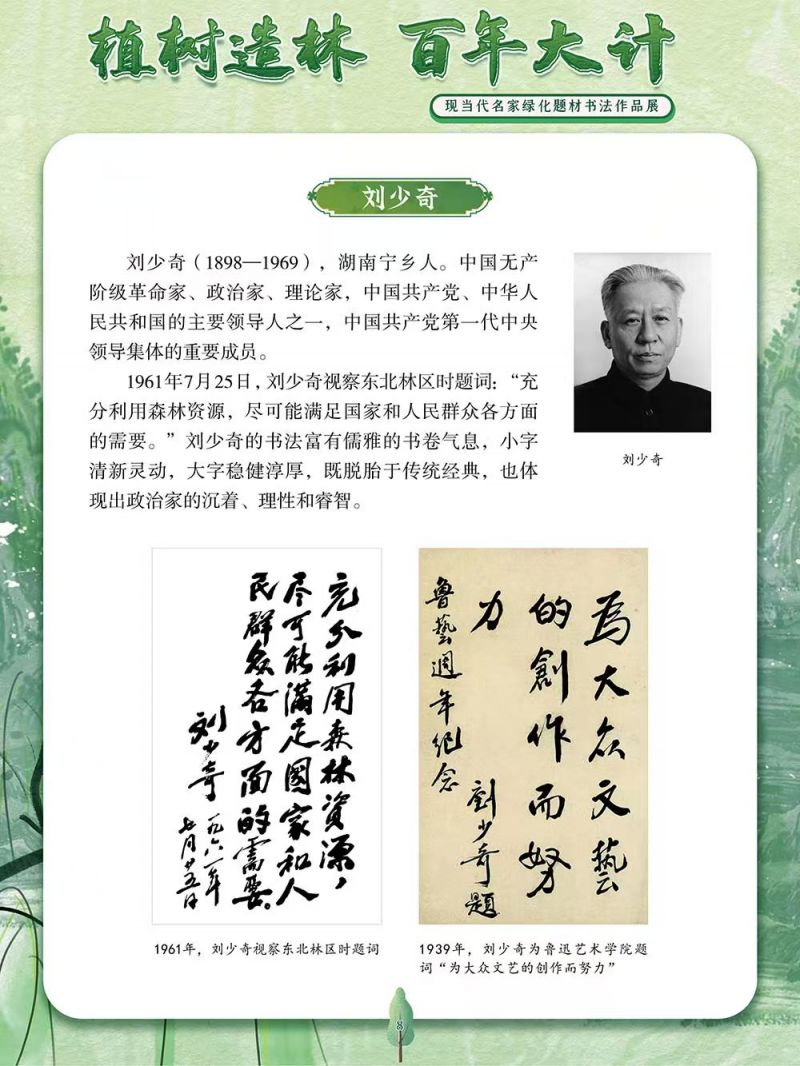 植树造林 百年大计
现当代名家绿化题材书法作品展
刘少奇
刘少奇（1898—1969），湖南宁乡人。中国无产
阶级革命家、政治家、理论家，中国共产党、中华人
民共和国的主要领导人之一，中国共产党第一代中央
领导集体的重要成员。
1961年7月25日，刘少奇视察东北林区时题词：“充
分利用森林资源，尽可能满足国家和人民群众各方面
的需要。”刘少奇的书法富有儒雅的书卷气息，小字
清新灵动，大字稳健淳厚，既脱胎于传统经典，也体
现出政治家的沉着、理性和睿智。
刘少奇
充分利用森林资源，
尽可能满足国家和人
民群众各方面的需要。
刘少奇
一九六一年
七月廿五日
为大众文艺
的創作而努
力
劉少奇題
魯藝週年纪念
1961年，刘少奇视察东北林区时题词
1939年，刘少奇为鲁迅艺术学院题
词“为大众文艺的创作而努力”
8